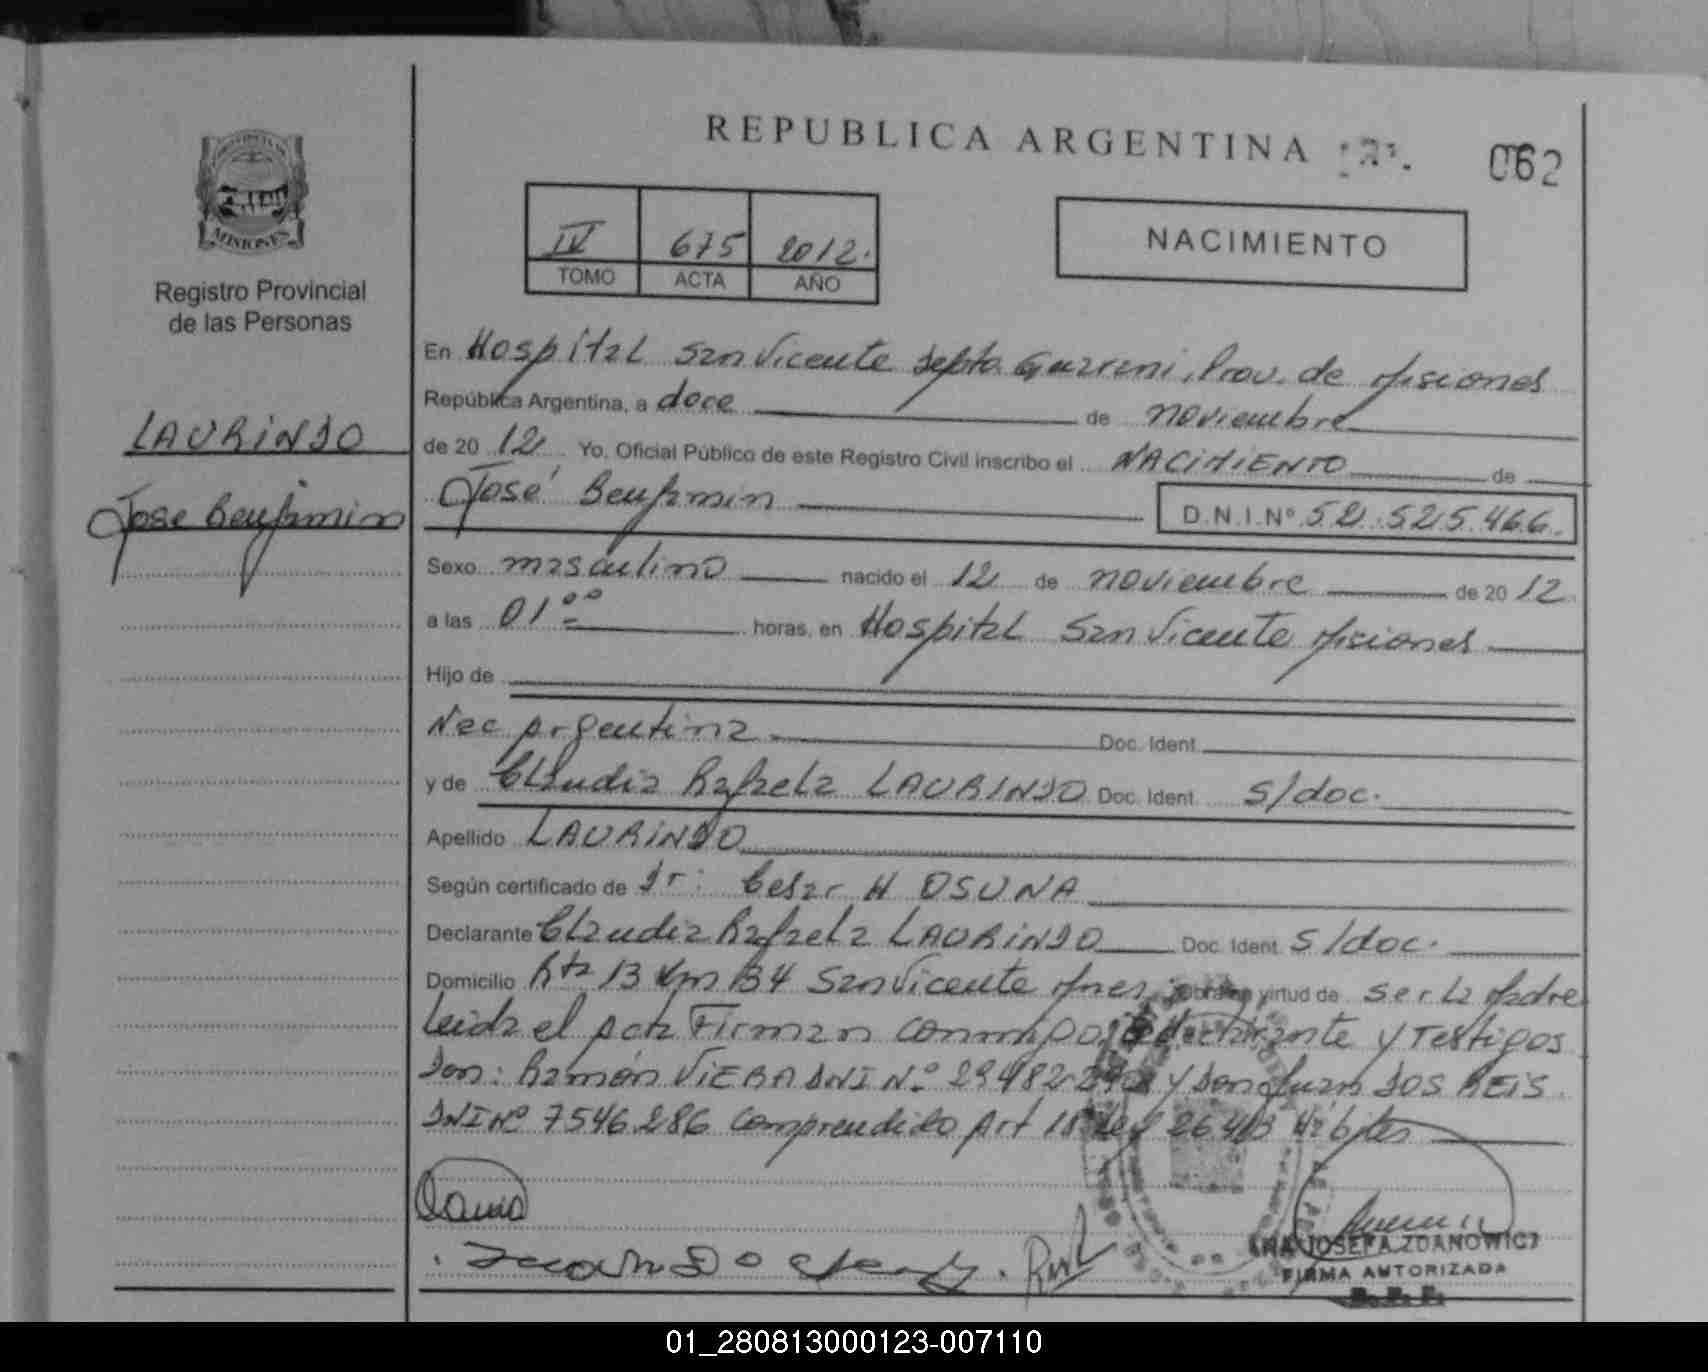 REPUBLICA ARGENTINA
062
PROVINCIA DE
MISIONES
Registro Provincial
de las Personas
IV 675 2012.
TOMO ACTA AÑO
NACIMIENTO
LAURINDO
Jose Benjamin
En Hospital San Vicente Depto. Guarani, Prov. de Misiones
República Argentina, a doce de noviembre
de 20 12 Yo, Oficial Público de este Registro Civil inscribo el NACIMIENTO de
José Benjamin D.N.I.Nº 52.525.466.
Sexo masculino nacido el 12 de noviembre de 20 12
a las 01 00 horas, en Hospital San Vicente Misiones
Hijo de
Nac Argentina Doc. Ident.
y de Claudia Rafaela LAURINDO Doc. Ident. s/doc.
Apellido LAURINDO
Según certificado de Dr: Cesar H OSUNA
Declarante Claudia Rafaela LAURINDO Doc. Ident. s/doc.
Domicilio Rta 13 Km 134 San Vicente Mnes Obra en virtud de ser la Madre
Leida el Acta Firman conmigo, declarante y Testigos
Don: Ramón VIERA DNI N.º y Don Juan DOS REIS
DNI Nº 7546.286 Comprendido Art 18 Ley 26.413
ANA JOSEFA ZDANOWICZ
FIRMA AUTORIZADA
01_280813000123-007110